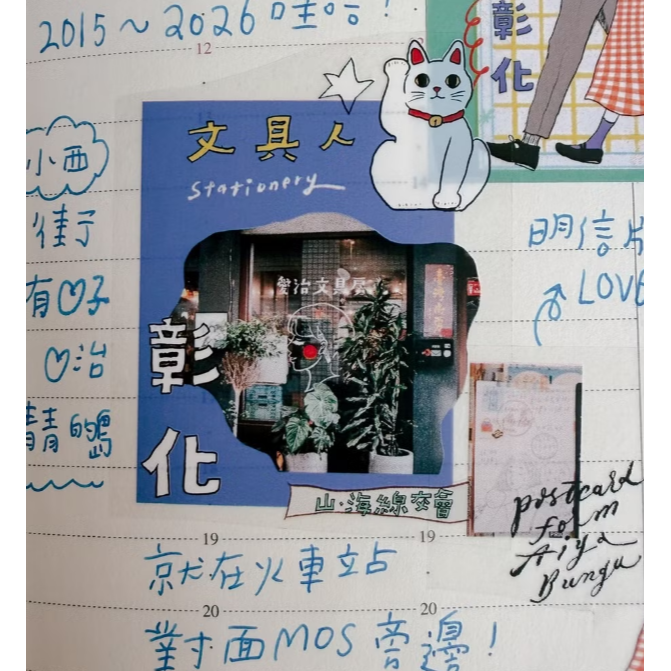 2015～2026哇哈！
12
彰
化
文具人
Stationery
14
小西
街
有♡
♡治
明信片
LOVE
愛治文具
彰
化
山·海線交會
postcard
Aiya
Bungu
19
19
就在火車站
20
20
對面MOS旁邊！